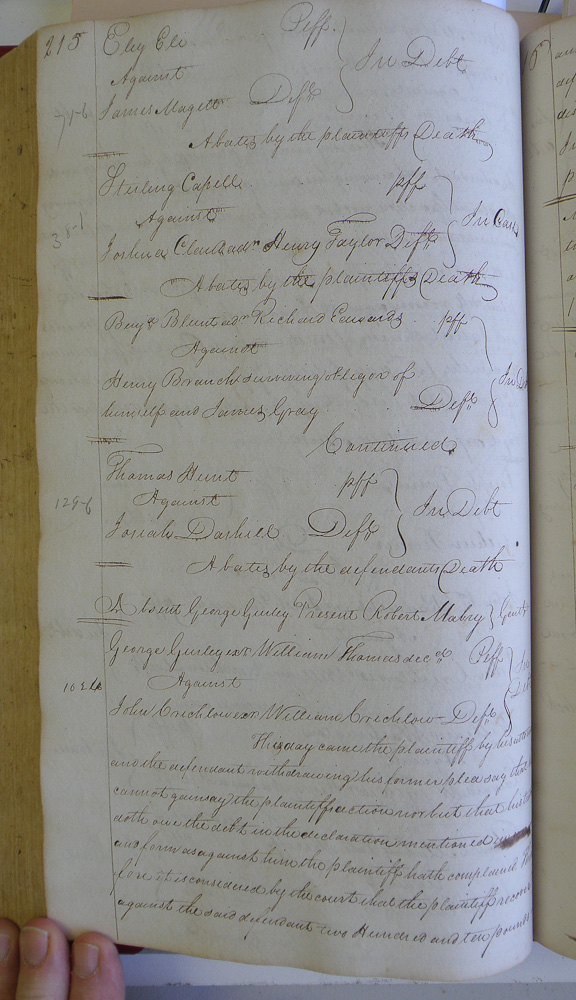 215
Eley Eli Pltff.
Against In Debt
James Magett Deft.
Abates by the plaintiffs Death
Sterling Capell pltff
Against In Case
Joshua Claud adr. Henry Taylor Deft.
Abates by the plaintiffs Death
Benja. Blunt adr. Richard Edwards pltff
Against
Henry Branch surviving obligor of In
himself and James Gray Deft.
Continued
Thomas Hunt pltff
129-6 Against In Debt
Josiah Dashiell Deft.
Abates by the defendants Death
Absent George Gurley Present Robert Mabry Gent.
George Gurley exr. William Thomas decd. Pltff
Against
John Crichlow exr William Crichlow Deft.
This day came the plaintiff by his
and the defendant withdrawing his former plea say that
cannot gainsay the plaintiff action nor but that his
doth owe the debt in the declaration mentioned
and form as against him the plaintiff hath complained
fore it is considered by the court that the plaintiff recover
against the said defendant two Hundred and ten pounds